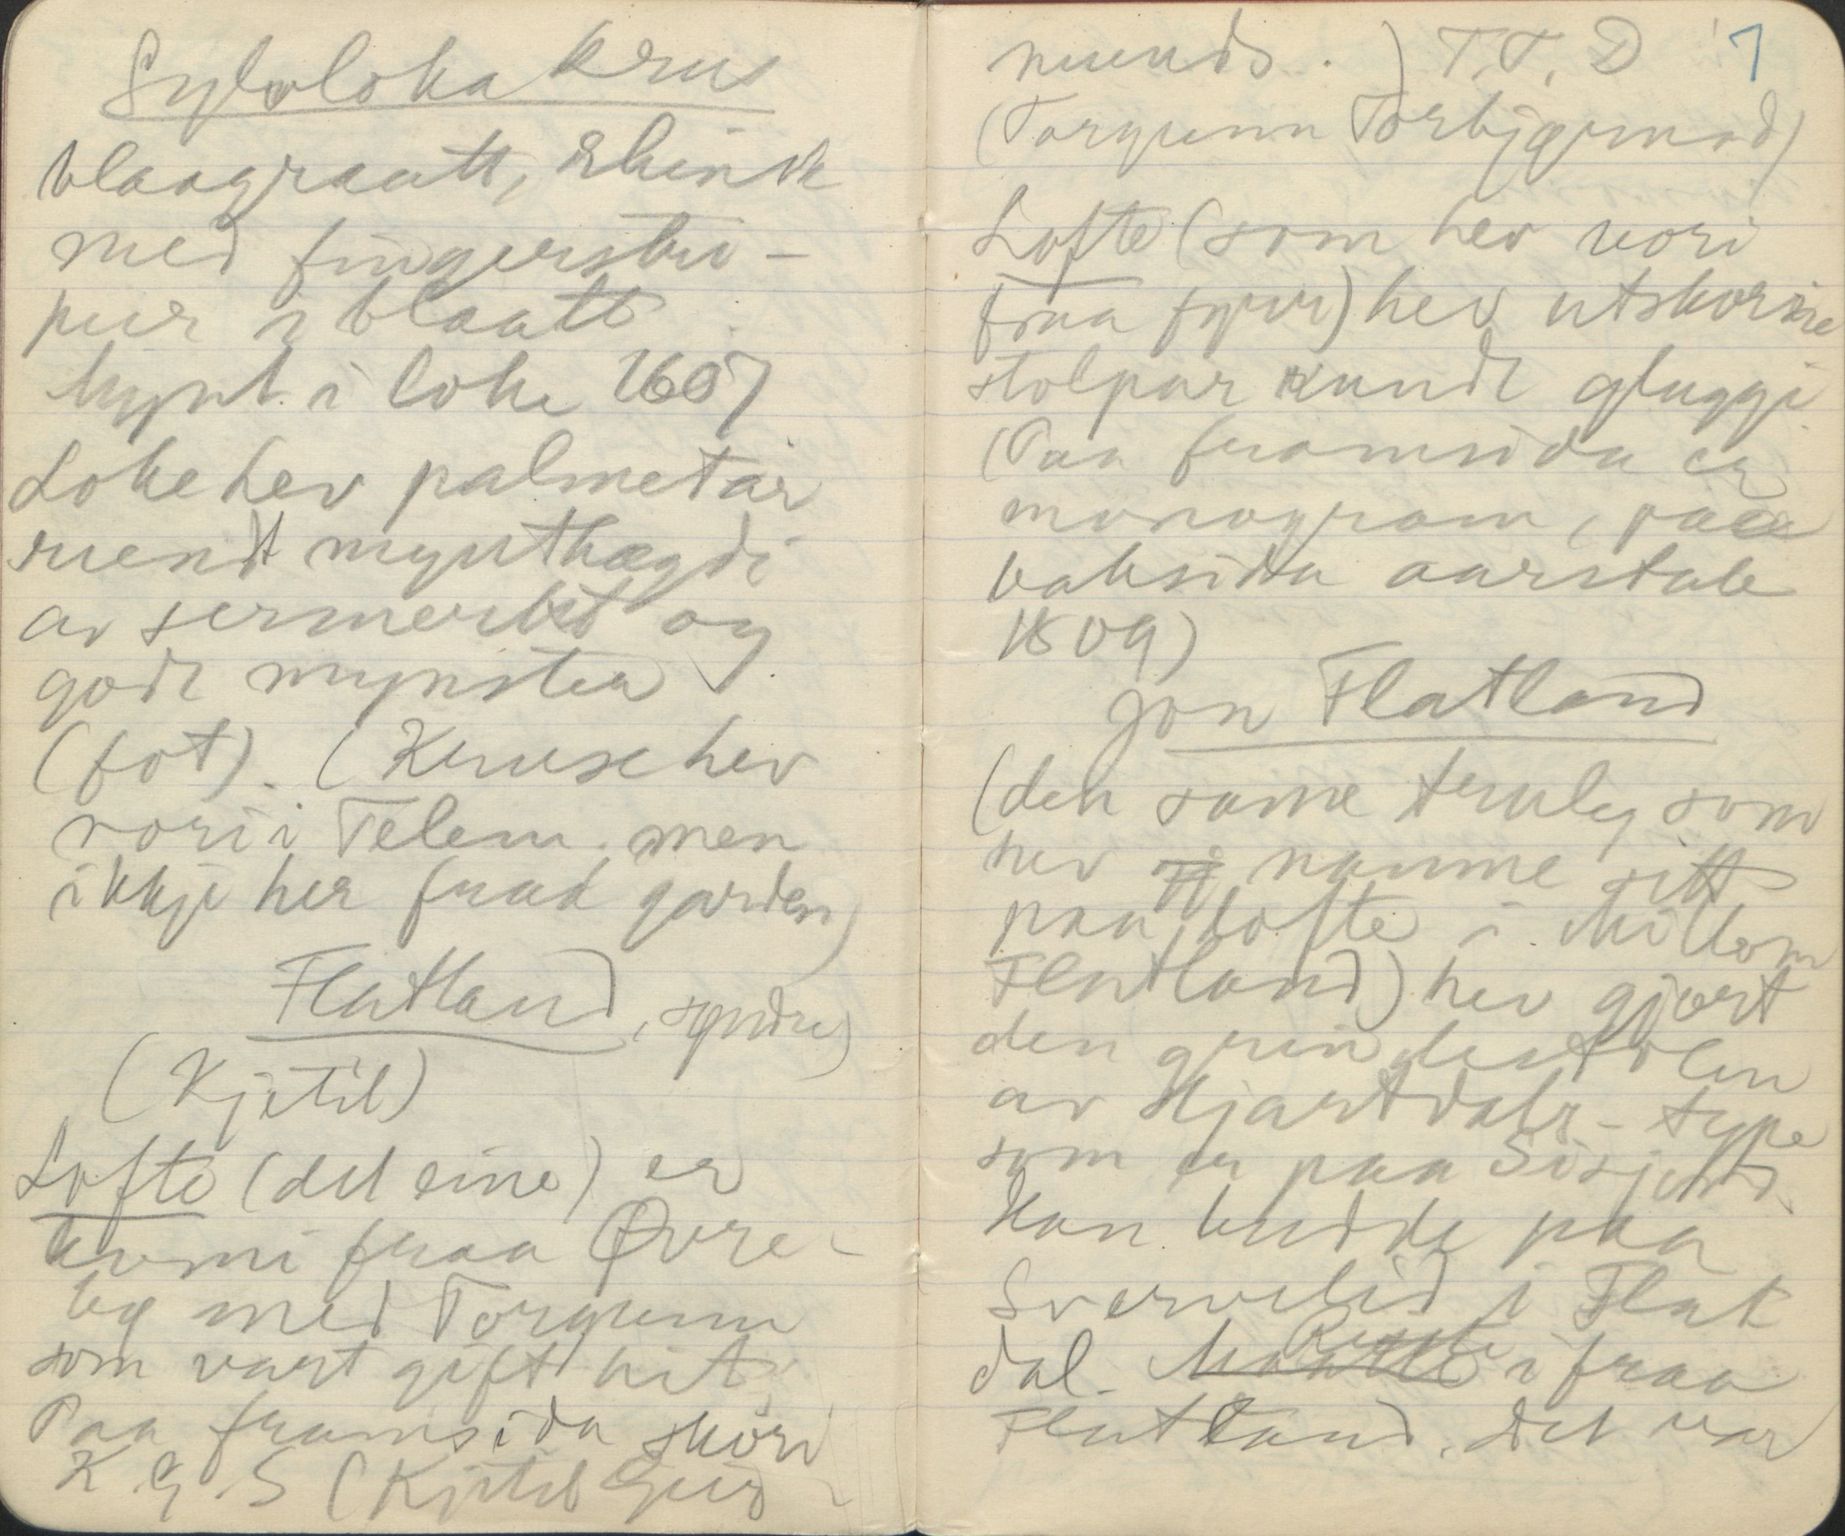 Sylvloka krus
blaagraatt, blink
med fingerstri-
pur i blaatt
Mynt i loke 1607
Loke hev palmetar
rundt mynthøgdi
av sermerkt og
godt mynster
(fot). (Kruse hev
vori i Telem. men
ikkje her fraa garden)
Flatland, syndre
(Kjetil)
Lofte (det eine) er
komi fraa Øvre-
bø med Torgunn
som vart gift hit,
Paa framsida skori
K.G.S (Kjetil Gud-
munds.) T.T.D 7
(Torgunn Torbjørnsd)
Lofte (som hev vori
fraa fyrr) hev utskorne
stolpar rundt gluggi
(Paa framsida er
monogram, paa
baksida aarstale
1809)
Jon Flatland
(den same truleg som
hev namne sitt
paa lofte i Millom
Flatland) hev gjort
den grindestolen
av Hjartdals-type
som er paa
Han budde paa
i Flat
dal. i fraa
Flatland. Det var